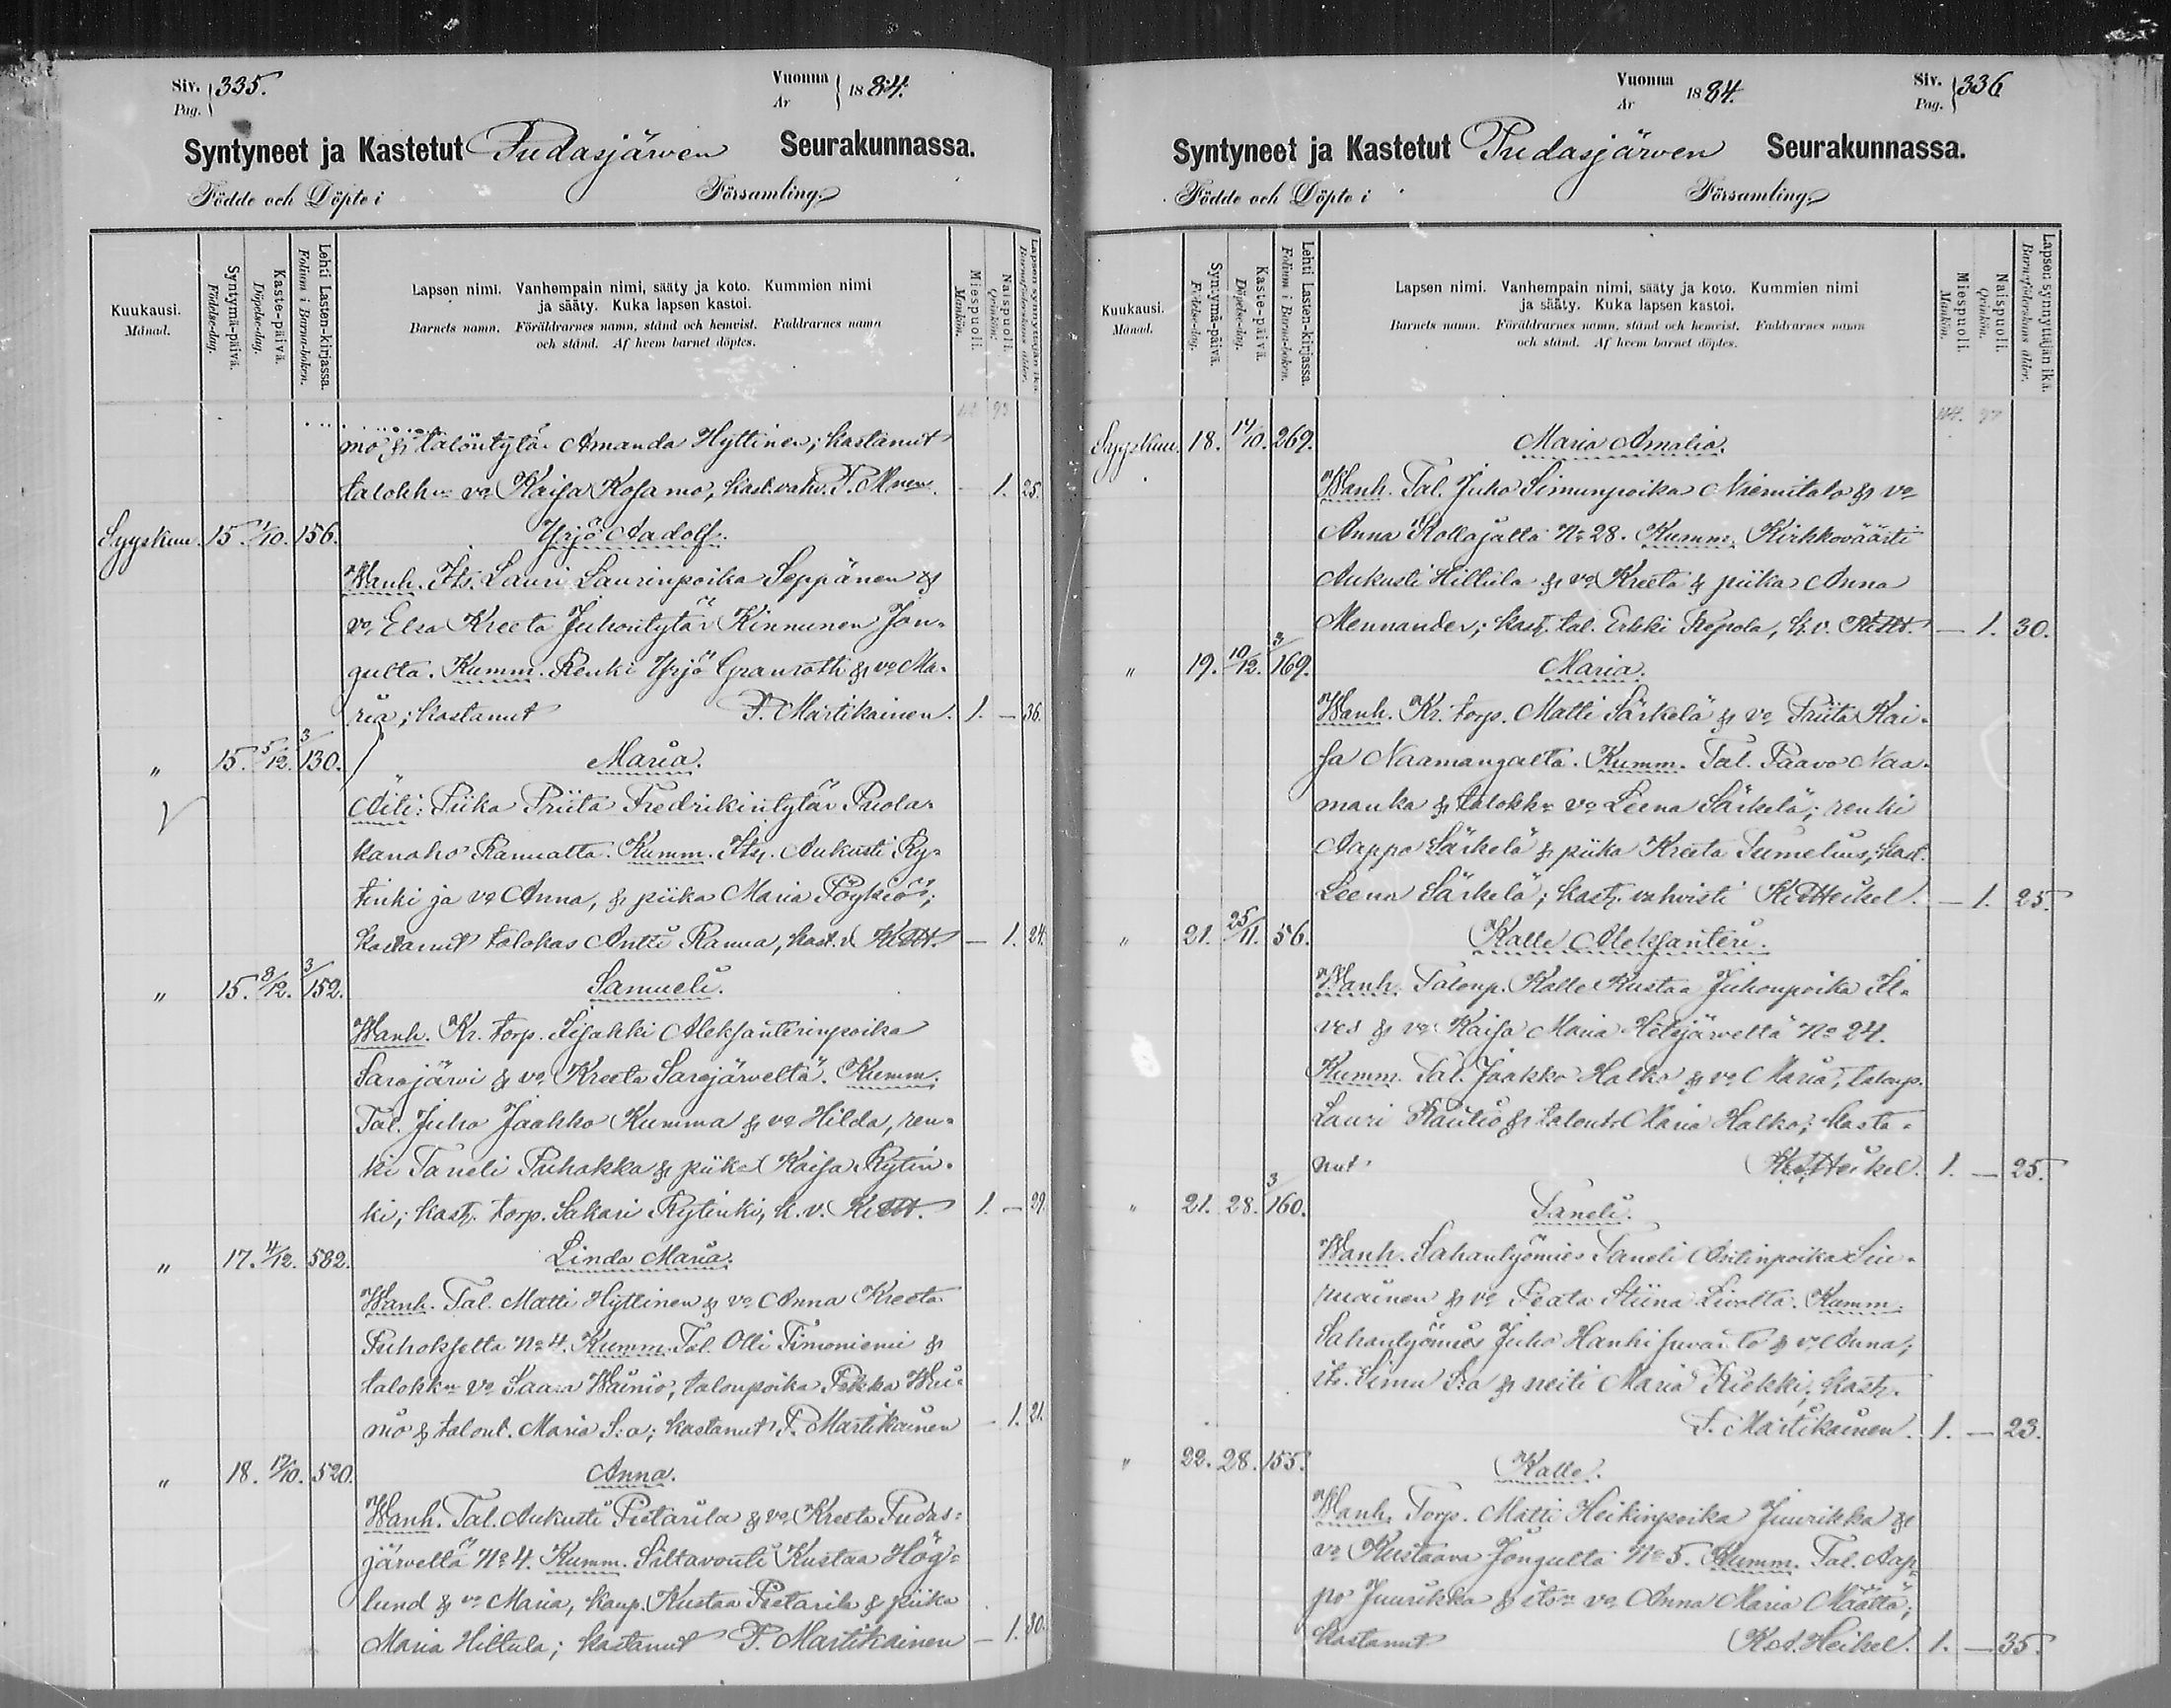 Siv. 335.
Pag.
Vuonna 1884.
År
Syntyneet ja Kastetut Pudasjärven Seurakunnassa.
Födde och Döpte i Församling.
Kuukausi.
Månad.
Syntymä-päivä.
Födelse-dag.
Kaste-päivä.
Döpelse-dag.
Lehti Lasten-kirjassa.
Folium i Barna-boken.
Lapsen nimi. Vanhempain nimi, sääty ja koto. Kummien nimi
ja sääty. Kuka lapsen kastoi.
Barnets namn. Föräldrarnes namn, stånd och hemvist. Faddrarnes namn
och stånd. Af hvem barnet döptes.
Miespuoli.
Mankön.
Naispuoli.
Qvinkön.
Lapsen synnyttäjän ikä.
Barnaföderskans ålder.
mo & talontytär Amanda Hyttinen; kastanut
talokkn vo Kaisa Kosamo, kast. vahv. P. M:nen. — 1. 25.
Syyskuu. 15. 1/10. 156. Yrjö Aadolf.
Wanh. Its. Lauri Laurinpoika Seppänen &
vo Elsa Kreeta Juhontytär Kinnunen Jon-
gulta. Kumm. Renki Yrjö Granroth & vo Ma-
ria; kastanut P. Martikainen. 1. — 36.
" 15. 5/12. 3/130. Maria.
Äiti: Piika Priita Fredrikintytär Puola-
kanaho Ranualta. Kumm. Its. Aukusti Ry-
tinki ja vo Anna, & piika Maria Pöykiö;
kastanut talokas Antti Ranua, kast. v. — 1. 24.
" 15. 8/12. 3/152. Samueli.
Wanh. Kr. torp. Iisakki Aleksanterinpoika
Sarajärvi & vo Kreeta Sarajärveltä. Kumm.
Tal. Juho Jaakko Kumma & vo Hilda, ren-
ki Taneli Puhakka & piika Kaisa Rytin-
ki; kast. torp. Sakari Rytinki, k. v. 1. — 29.
" 17. 4/12. 582. Linda Maria.
Wanh. Tal. Matti Hyttinen & vo Anna Kreeta
Puhokselta No 4. Kumm. Tal. Olli Timoniemi &
talokkn vo Saara Wäinio, talonpoika Pekka Wäi-
niö & talont. Maria S:a; kastanut P. Martikainen — 1. 21.
" 18. 12/10. 520. Anna.
Wanh. Tal. Aukusti Pietarila & vo Kreeta Pudas-
järveltä No 4. Kumm. Siltavouti Kustaa Hög-
lund & vo Maria, kaup. Kustaa Pietarila & piika
Maria Hiltula; kastanut P. Martikainen — 1. 30.
Vuonna 1884.
År
Siv. 336
Pag.
Syntyneet ja Kastetut Pudasjärven Seurakunnassa.
Födde och Döpte i Församling.
Kuukausi.
Månad.
Syntymä-päivä.
Födelse-dag.
Kaste-päivä.
Döpelse-dag.
Lehti Lasten-kirjassa.
Folium i Barna-boken.
Lapsen nimi. Vanhempain nimi, sääty ja koto. Kummien nimi
ja sääty. Kuka lapsen kastoi.
Barnets namn. Föräldrarnes namn, stånd och hemvist. Faddrarnes namn
och stånd. Af hvem barnet döptes.
Miespuoli.
Mankön.
Naispuoli.
Qvinkön.
Lapsen synnyttäjän ikä.
Barnaföderskans ålder.
Syyskuu. 18. 269. Maria Amalia.
Wanh. Tal. Juho Simunpoika Niemitalo & vo
Anna Kollajalta No 28. Kumm. Kirkkoväärti
Aukusti Hiltula & vo Kreeta & piika Anna
Mennander; kast. tal. Erkki Repola, k. v. — 1. 30.
" 19. 10/12. 3/169. Maria.
Wanh. Kr. torp. Matti Särkelä & vo Priita Kai-
sa Naamangalta. Kumm. Tal. Paavo Naa-
manka & talokkn vo Leena Särkelä; renki
Aappo Särkelä & piika Kreeta Tumelius, kast.
Leena Särkelä; kast. vahvisti Heikel. — 1. 25.
" 21. 25/11. 56. Kalle Aleksanteri.
Wanh. Talonp. Kalle Kustaa Juhonpoika Il-
ves & vo Kaisa Maria Hetejärveltä No 24.
Kumm. Tal. Jaakko Halko & vo Maria, talonp.
Lauri Rautio & talont. Maria Halko; kasta-
nut Heikel. 1. — 25.
" 21. 28. 3/160. Taneli.
Wanh. Sahantyömies Taneli Antinpoika Siu-
ruainen & vo Peata Stiina Livolta. Kumm.
Sahantyömies Juho Hanhisuvanto & vo Anna;
its. Simu S:a & neiti Maria Riekki, kast.
P. Martikainen. 1. — 23.
" 22. 28. 155. Kalle.
Wanh. Torp. Matti Heikinpoika Juurikka &
vo Kustaava Jongulta No 5. Kumm. Tal. Aap-
po Juurikka & itsn vo Anna Maria Määttä;
kastanut Heikel. 1. — 35.